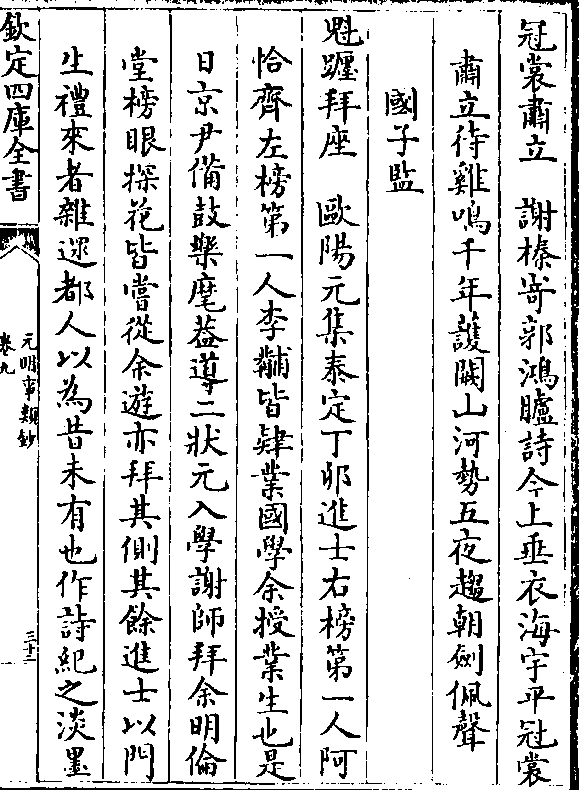 冠裳肅立　謝榛寄郭鴻臚詩今上垂衣海宇平冠裳
肅立待雞鳴千年護闕山河勢五夜趨朝劍佩聲
國子監
魁躔拜座　歐陽元集泰定丁卯進士右榜第一人阿
恰齊左榜第一人李黼皆肄業國學余授業生也是
日京尹備鼓樂麾葢導二狀元入學謝師拜余明倫
堂榜眼探花皆嘗從余遊亦拜其側其餘進士以門
生禮來者雜遝都人以為昔未有也作詩紀之淡墨
欽定四庫全書
元明事類鈔
卷九
三十二